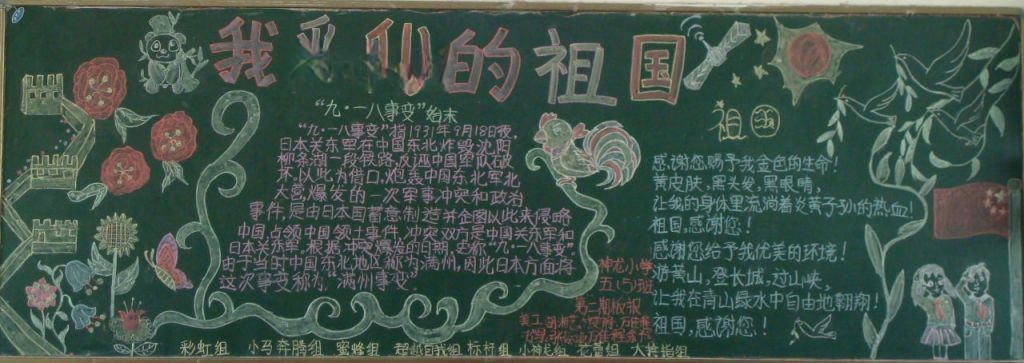 我爱你的祖国
“九·一八事变”始末
“九·一八事变”指1931年9月18日夜,
日本关东军在中国东北炸毁沈阳
柳条湖一段铁路,反诬中国军队破
坏,以此为借口,炮轰中国东北军北
大营爆发的一次军事冲突和政治
事件,是由日本国蓄意制造并企图以此来侵略
中国,占领中国领土事件,冲突双方是中国关东军和
日本关东军,根据冲突爆发的日期,史称“九·一八事变”
由于当时中国东北地区称为满州,因此日本方面将
这次事变称为“满州事变”
祖国
感谢您赐予我金色的生命!
黄皮肤,黑头发,黑眼睛,
让我的身体里流淌着炎黄子孙的热血!
祖国,感谢您!
感谢您给予我优美的环境!
游黄山,登长城,过山峡,
让我在青山绿水中自由地翱翔!
祖国,感谢您!
神龙小学
五(5)班
第二期板报
美工:
彩虹组 小马奔腾组 蜜蜂组 超越自我组 标杆组 花蕾组 大拇指组